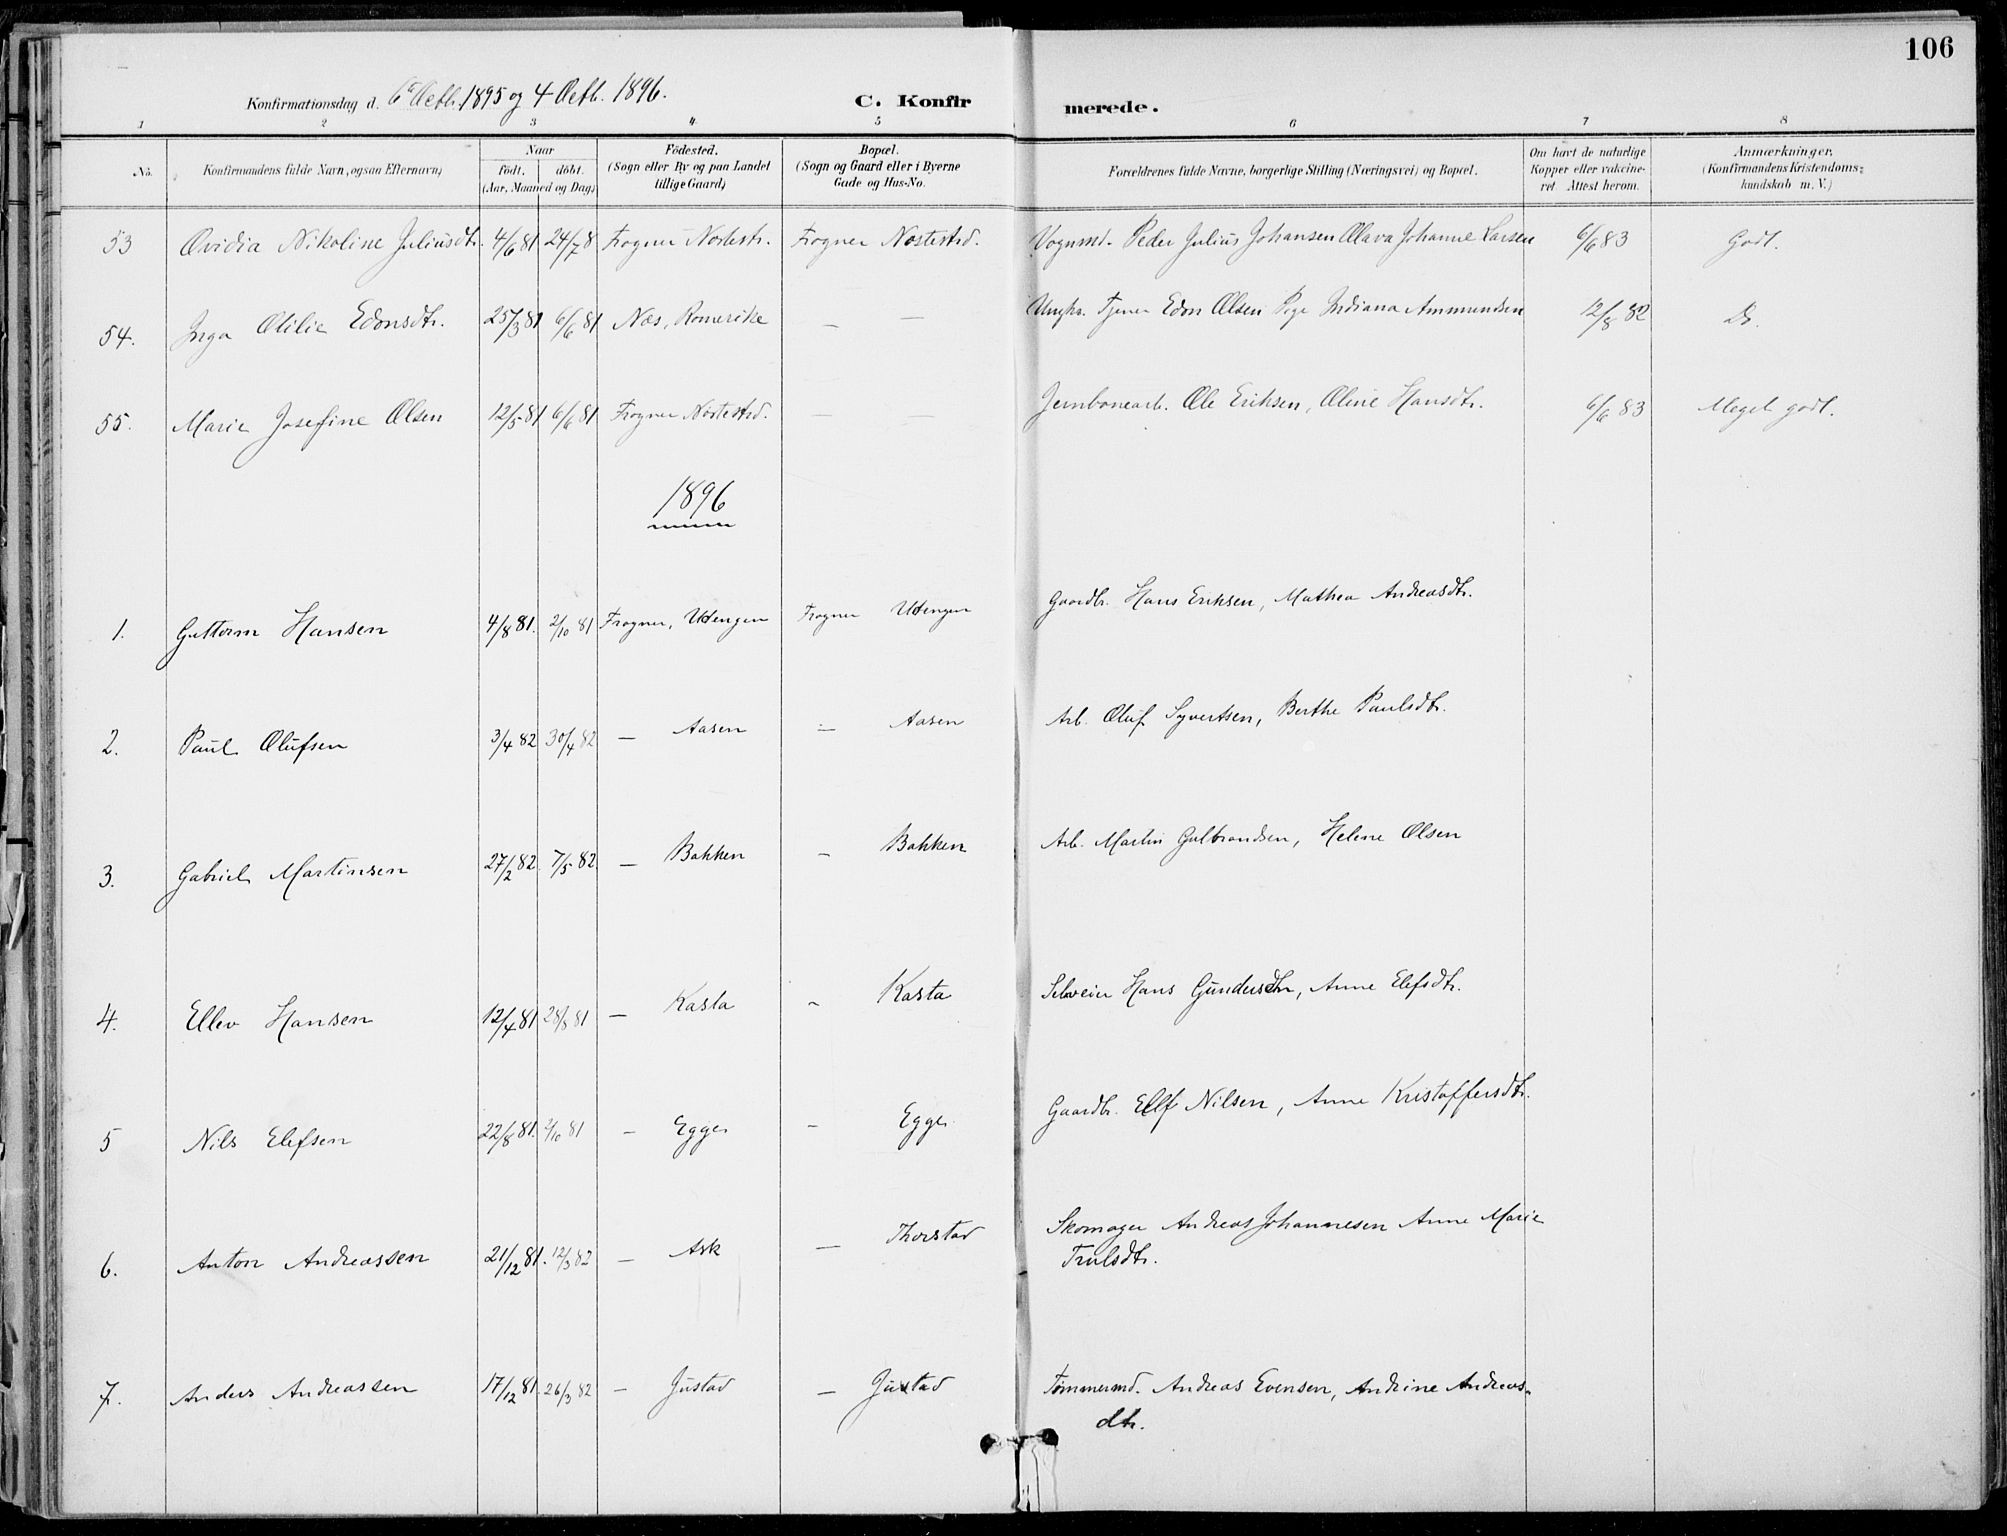 106
Konfirmationsdag d. 6te Octb. 1895 og 4 Octb. 1896.
C. Konfirmerede.
1 2 3 4 5 6 7 8
No.
Konfirmandens fulde Navn, ogsaa Efternavn)
Naar
födt. döbt.
(Aar, Maaned og Dag)
Födested.
(Sogn eller By og paa Landet
tillige Gaard)
Bopæl.
(Sogn og Gaard eller i Byerne
Gade og Hus-No.
Forældrenes fulde Navne, borgerlige Stilling (Næringsvei) og Bopæl.
Om havt de naturlige
Kopper eller vakcine-
ret Attest herom.
Anmærkninger.
(Konfirmandens Kristendoms-
kundskab m. V.)
53 Ovidia Nikoline Juliusdtr. 4/6 81 24/7 8 Frogner Nostestr. Frogner Nostestrd. Vognmd. Peder Julius Johansen Olava Johanne Larsen 6/6 83 Godt.
54. Inga Otilie Edonsdtr. 25/3 81 6/6 81 Næs, Romerike — — Ungkr. Tjener Edon Olsen Pige Indiana Ammundsen 12/8 82 Do.
55. Marie Josefine Olsen 12/5 81 6/6 81 Frogner Nostestrd. — — Jernbanearb. Ole Eriksen, Oline Hansdtr. 6/6 83 Meget godt.
1896
1. Guttorm Hansen 4/8 81. 2/10 81 Frogner, Udengen Frogner Udengen Gaardbr. Hans Eriksen, Mathea Andreasdtr.
2. Paul Olufsen 3/4 82 30/4 82 — Aasen — Aasen Arb. Oluf Syvertsen, Berthe Paulsdtr.
3. Gabriel Martinsen 27/2 82. 7/5 82. — Bakken — Bakken Arb. Martin Gulbrandsen, Helene Olsen
4. Ellev Hansen 12/4 81 28/8 81 — Kasta — Kasta Selveier Hans Gundersen, Anne Elefsdtr.
5 Nils Elefsen 22/8 81. 2/10 81 — Egge — Egge Gaardbr. Ellf Nilsen, Anne Kristoffersdtr.
6. Anton Andreassen 21/12 81. 12/3 82 — Ask — Thorstad Skomager Andreas Johannesen Anne Marie
Trulsdtr.
7. Anders Andreassen 17/12 81. 26/3 82 — Justad — Justad Tømmermd. Andreas Evensen, Andrine Andreas-
dtr.